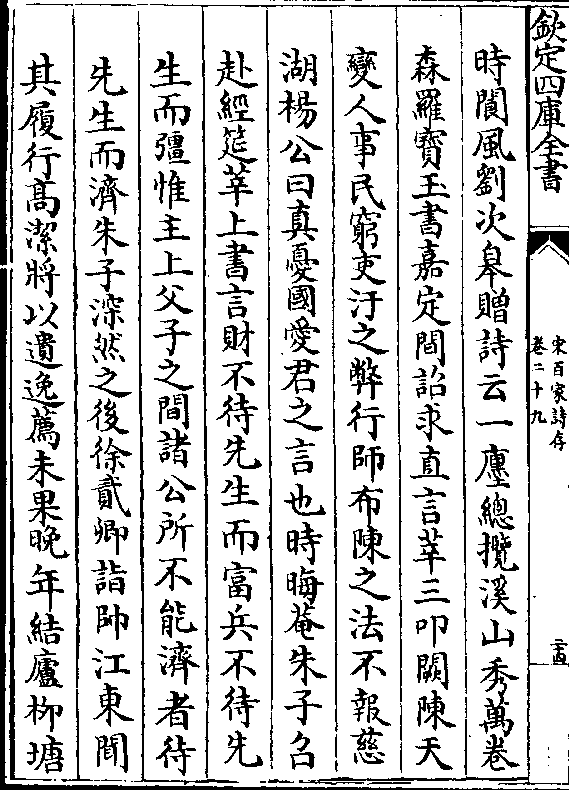 欽定四庫全書
宋百家詩存
卷二十九
時閬風劉次臯贈詩云一廛總攬溪山秀萬卷
森羅寶玉書嘉定間詔求直言莘三叩闕陳天
變人事民窮吏汙之弊行師布陳之法不報慈
湖楊公曰真憂國愛君之言也時晦菴朱子召
赴經筵莘上書言財不待先生而富兵不待先
生而彊惟主上父子之間諸公所不能濟者待
先生而濟朱子深然之後徐貳卿詣帥江東聞
其履行高潔將以遺逸薦未果晚年結廬栁塘